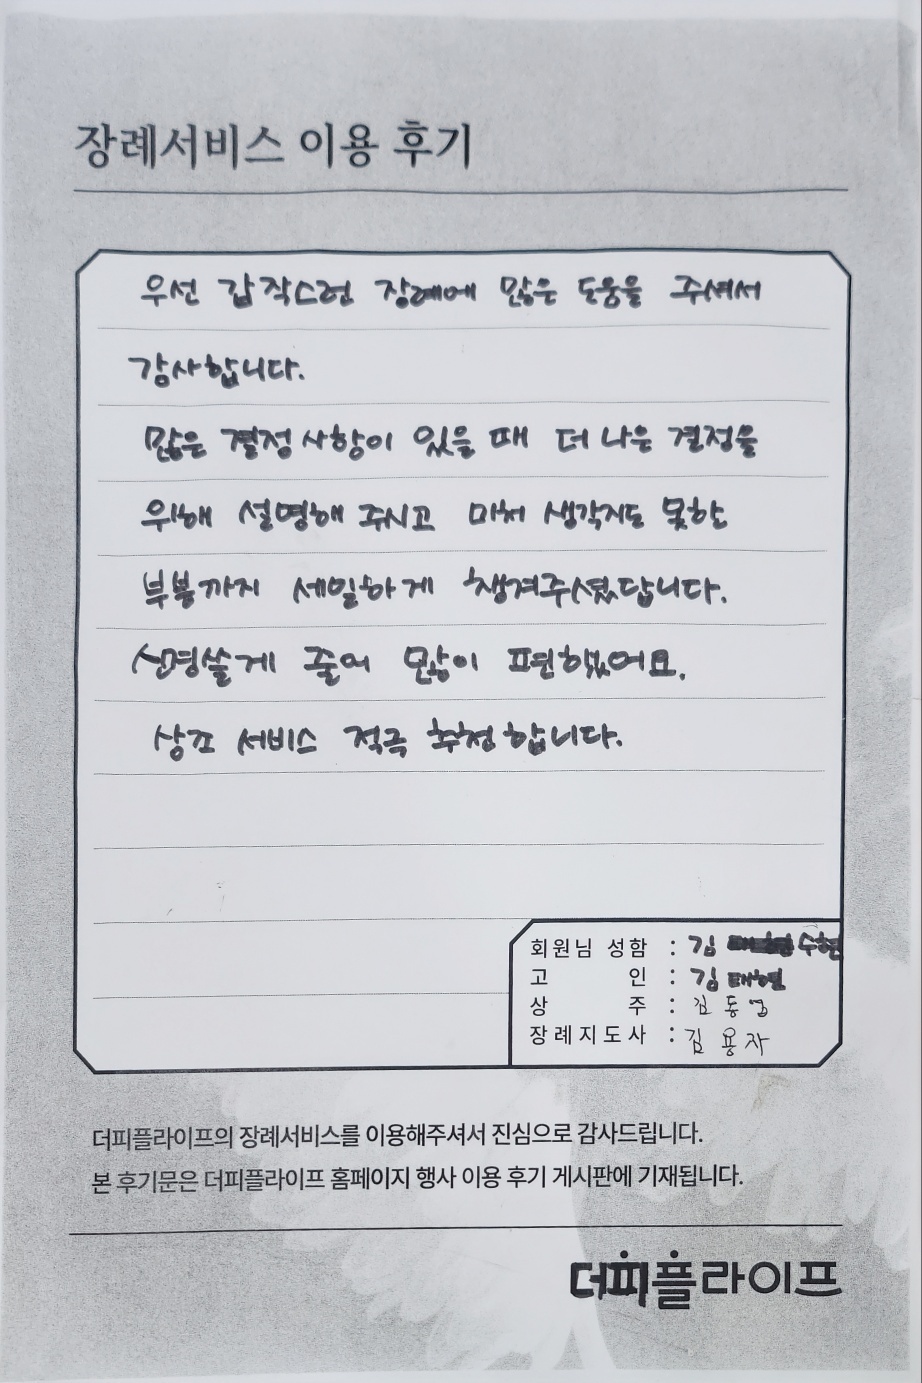 장례서비스 이용 후기
우선 갑작스런 장례에 많은 도움을 주셔서
감사합니다.
많은 결정사항이 있을 때 더 나은 결정을
위해 설명해 주시고 미처 생각지도 못한
부분까지 세밀하게 챙겨주셨답니다.
신경쓸게 줄어 많이 편했었어요.
상조 서비스 적극 추천합니다.
회원님 성함 : 김 수현
고 인 : 김태현
상 주 : 김동영
장례지도사 : 김용자
더피플라이프의 장례서비스를 이용해주셔서 진심으로 감사드립니다.
본 후기문은 더피플라이프 홈페이지 행사 이용 후기 게시판에 기재됩니다.
더피플라이프